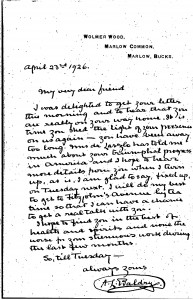 WOLMER WOOD,
MARLOW COMMON,
MARLOW, BUCKS.
April 23rd 1926.
My very dear friend
I was delighted to get your letter
this morning and to hear that you
are really on your way home. It is
time you shed the light of your presence
on us again — you have been away
too long. Mde de Laszlo has told me
much about your triumphal progress
in America and I hope to have
more details from you when I turn
up, as it, I am glad to say, fixed up,
on Tuesday next. I will do my best
to get to Fitzjohn's Avenue in
time so that I can have a chance
to get a real talk with you.
I hope to find you in the best of
health and spirits and none the
worse for your strenuous work during
the last few months.
So, till Tuesday —
always yours
A. L. Baldry.